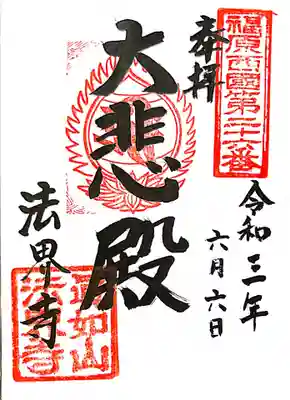 福原西國第二十一番
奉拝
令和三年
六月六日
大悲殿
法界寺
真如山
法界寺